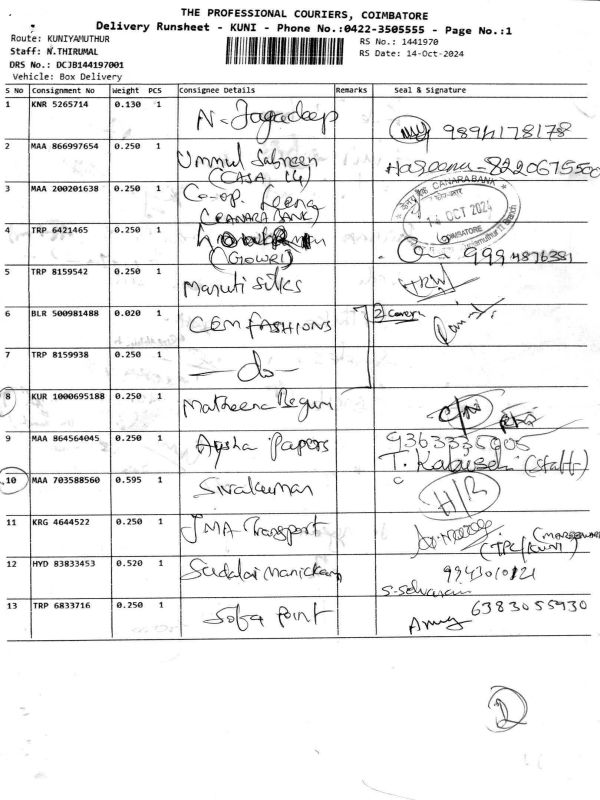 THE PROFESSIONAL COURIERS, COIMBATORE
Delivery Runsheet - KUNI - Phone No.:0422-3505555 - Page No.:1
Route: KUNIYAMUTHUR
RS No.: 1441970
Staff: N.THIRUMAL
RS Date: 14-Oct-2024
DRS No.: DCJB144197001
Vehicle: Box Delivery
S No Consignment No Weight PCS Consignee Details Remarks Seal & Signature
1 KNR 5265714 0.130 1 N- Jagadeep 9894178178
2 MAA 866997654 0.250 1 Ummul Sabneen Haseena - 8220675500
(CASA 14)
3 MAA 200201638 0.250 1 Co-op. Leena
(CANARA BANK)
CANARA BANK
14 OCT 2024
COIMBATORE
4 TRP 6421465 0.250 1
(GOWRI) 9994876381
5 TRP 8159542 0.250 1 Maruti silks
6 BLR 500981488 0.020 1 CEM FASHIONS 2 covers
7 TRP 8159938 0.250 1 —do—
8 KUR 1000695188 0.250 1 Matheena Begum
9 MAA 864564045 0.250 1 Aysha Papers 9363335005
(staff)
10 MAA 703588560 0.595 1 Sivakumar H/R
11 KRG 4644522 0.250 1 JMA Transport
(TPC/KUNI)
12 HYD 83833453 0.520 1 Sudalai Manickam 9943010121
S. Selvaram
13 TRP 6833716 0.250 1 Sofa Point 6383055930